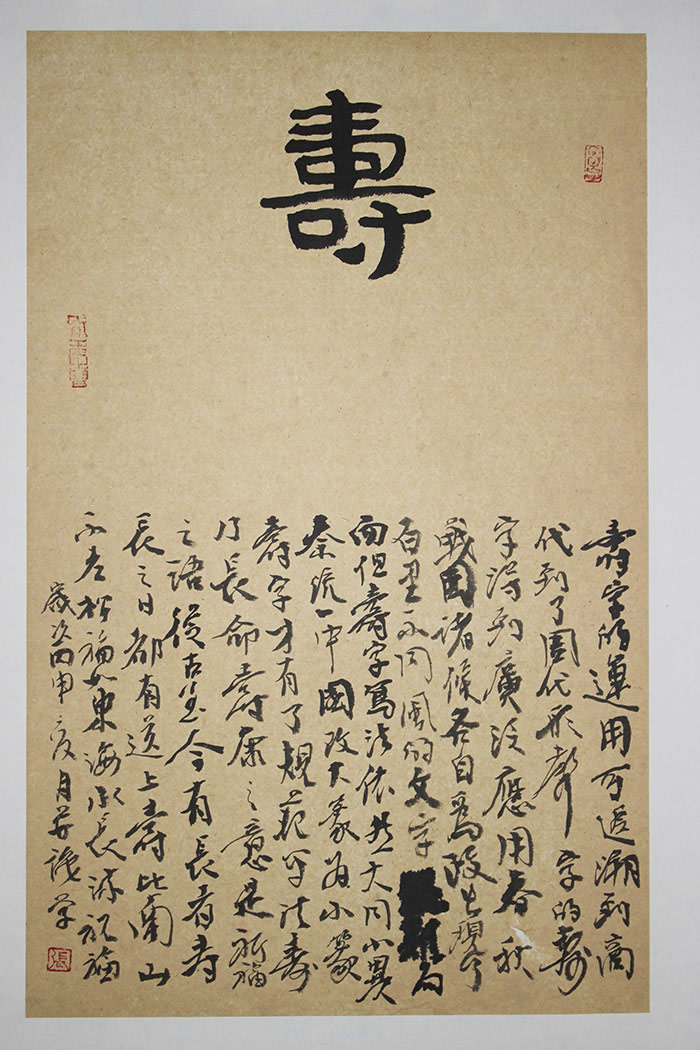 壽
壽字的運用可追溯到商
代到了周代形聲字的壽
字得到廣泛應用春秋
戰國諸侯各自爲政出現了
百里不同風的文字局
面但壽字寫法依然大同小異
秦統一中國改大篆爲小篆
壽字才有了規範法壽
乃長命壽康之意是祈福
之語從古至今有長者壽
辰之日都有送上壽比南山
不老松福如東海水長流祝福
歲次丙申夏月
張